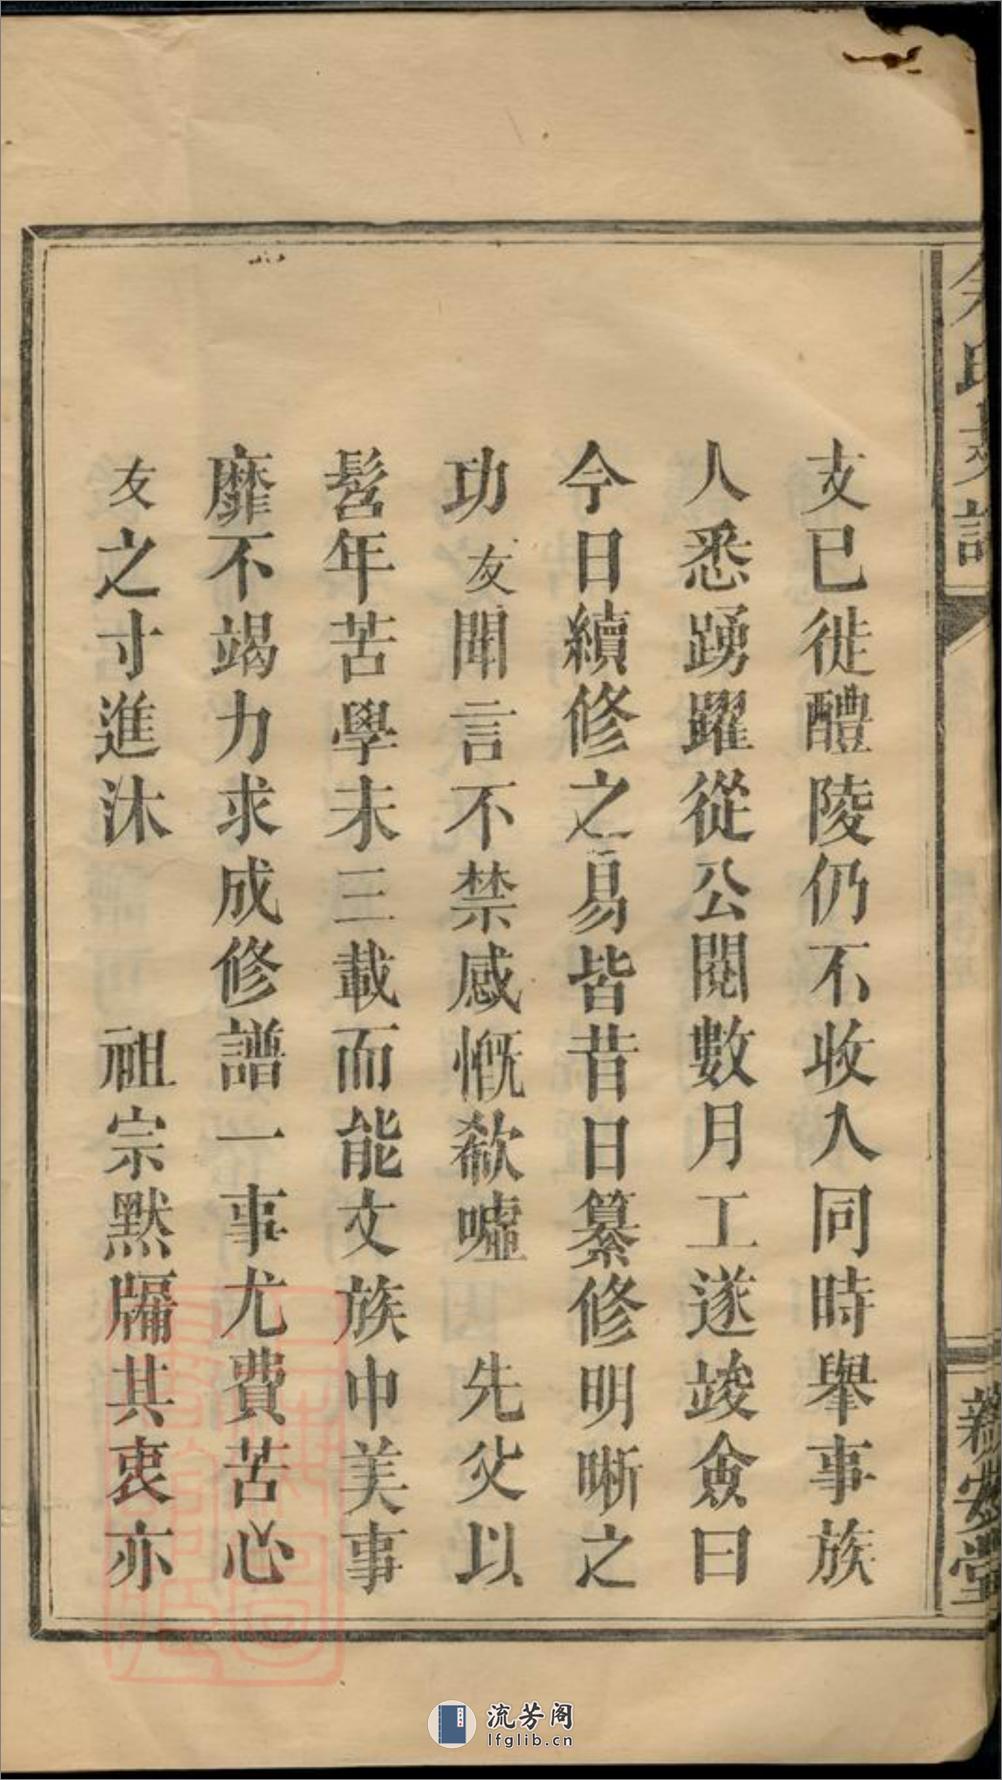 支已徙醴陵仍不收入同時舉事族
人悉踴躍從公閱數月工遂竣僉曰
今日續修之易皆昔日纂修明晰之
功友聞言不禁感慨欷噓 先父以
髫年苦學未三載而能文族中美事
靡不竭力求成修譜一事尤費苦心
友之寸進沐 祖宗默牖其衷亦
氏支譜
新安堂
流芳阁
lfglib.cn